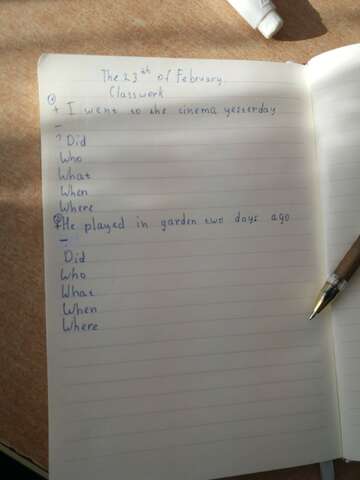 The 23th of February.
Classwork
①
+ I went to the cinema yesterday
-
? Did
Who
What
When
Where
②
+ He played in garden two days ago
-
Did
Who
What
When
Where